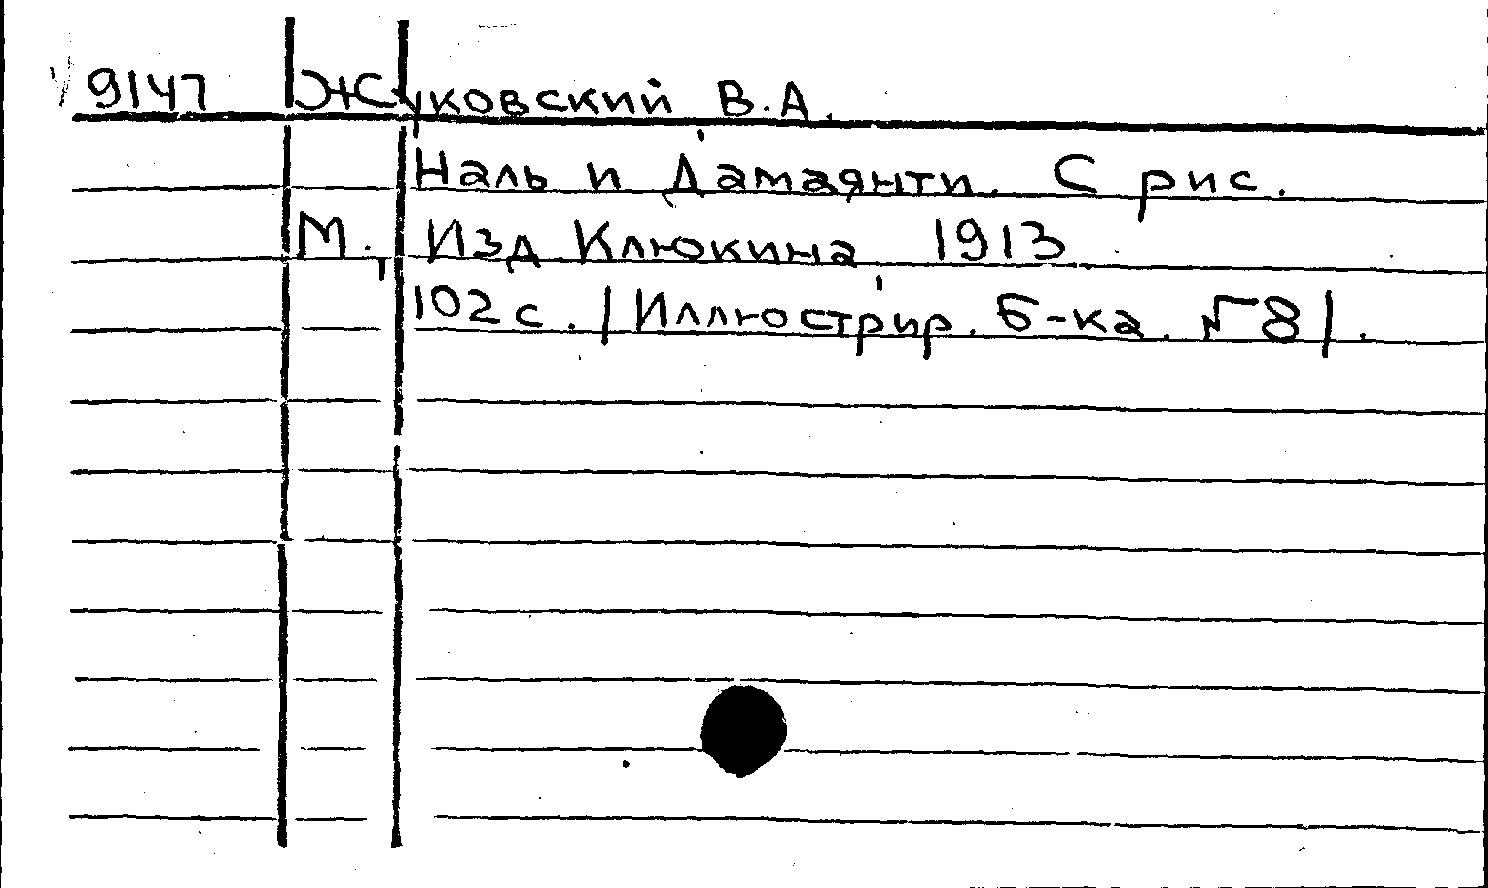 9147 Жуковский В.А.
Наль и Дамаянти. С рис.
М., Изд Клюкина, 1913
102 с. /Иллюстрир. б-ка №8/.